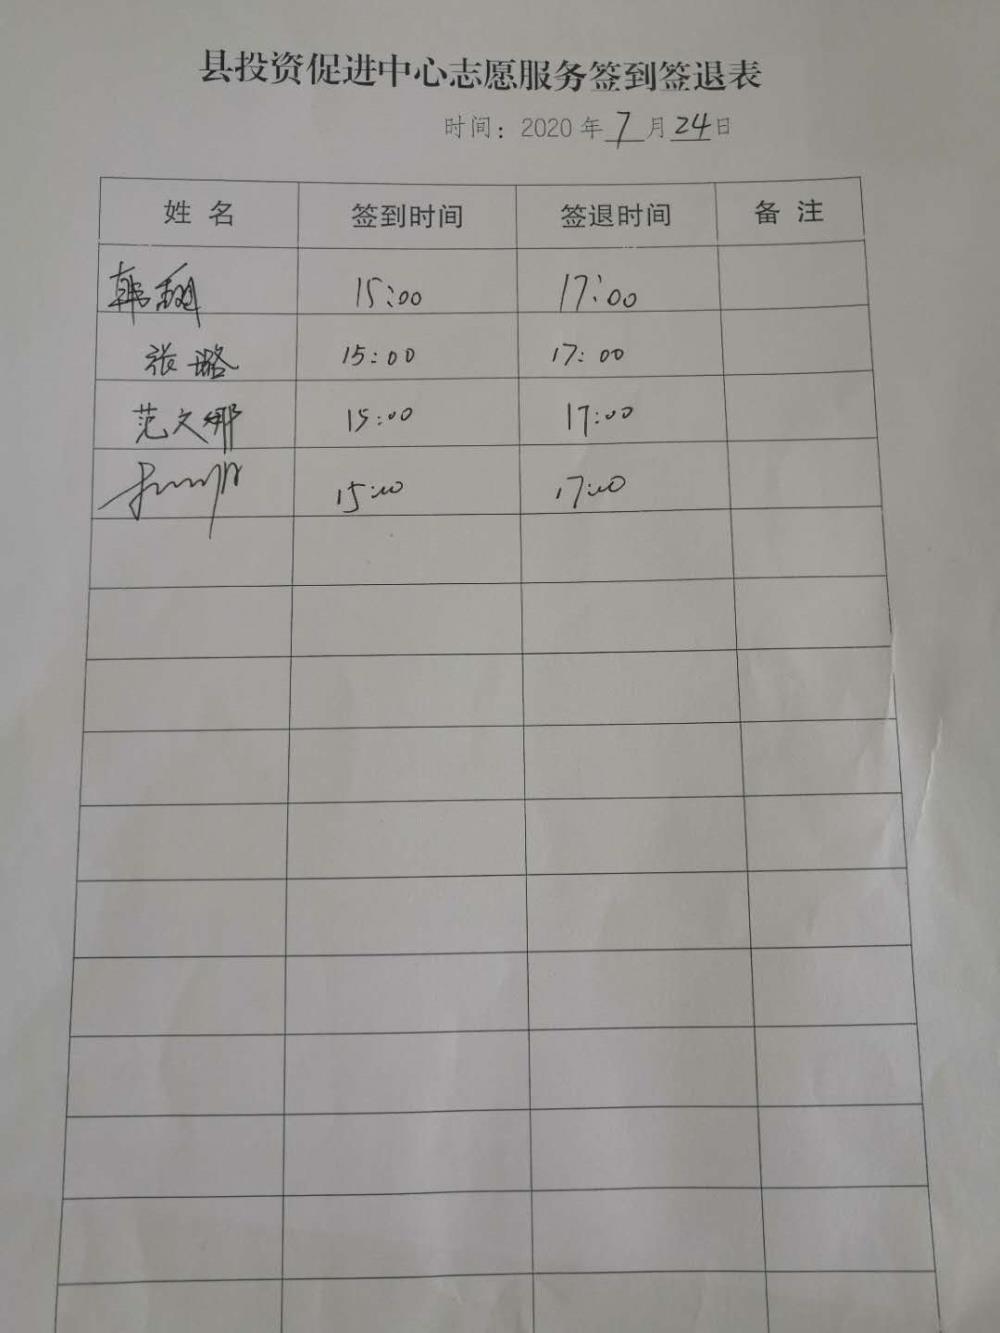 县投资促进中心志愿服务签到签退表
时间：2020年7月24日
姓 名 签到时间 签退时间 备 注
韩 15:00 17:00
张璐 15:00 17:00
范文娜 15:00 17:00
15:00 17:00